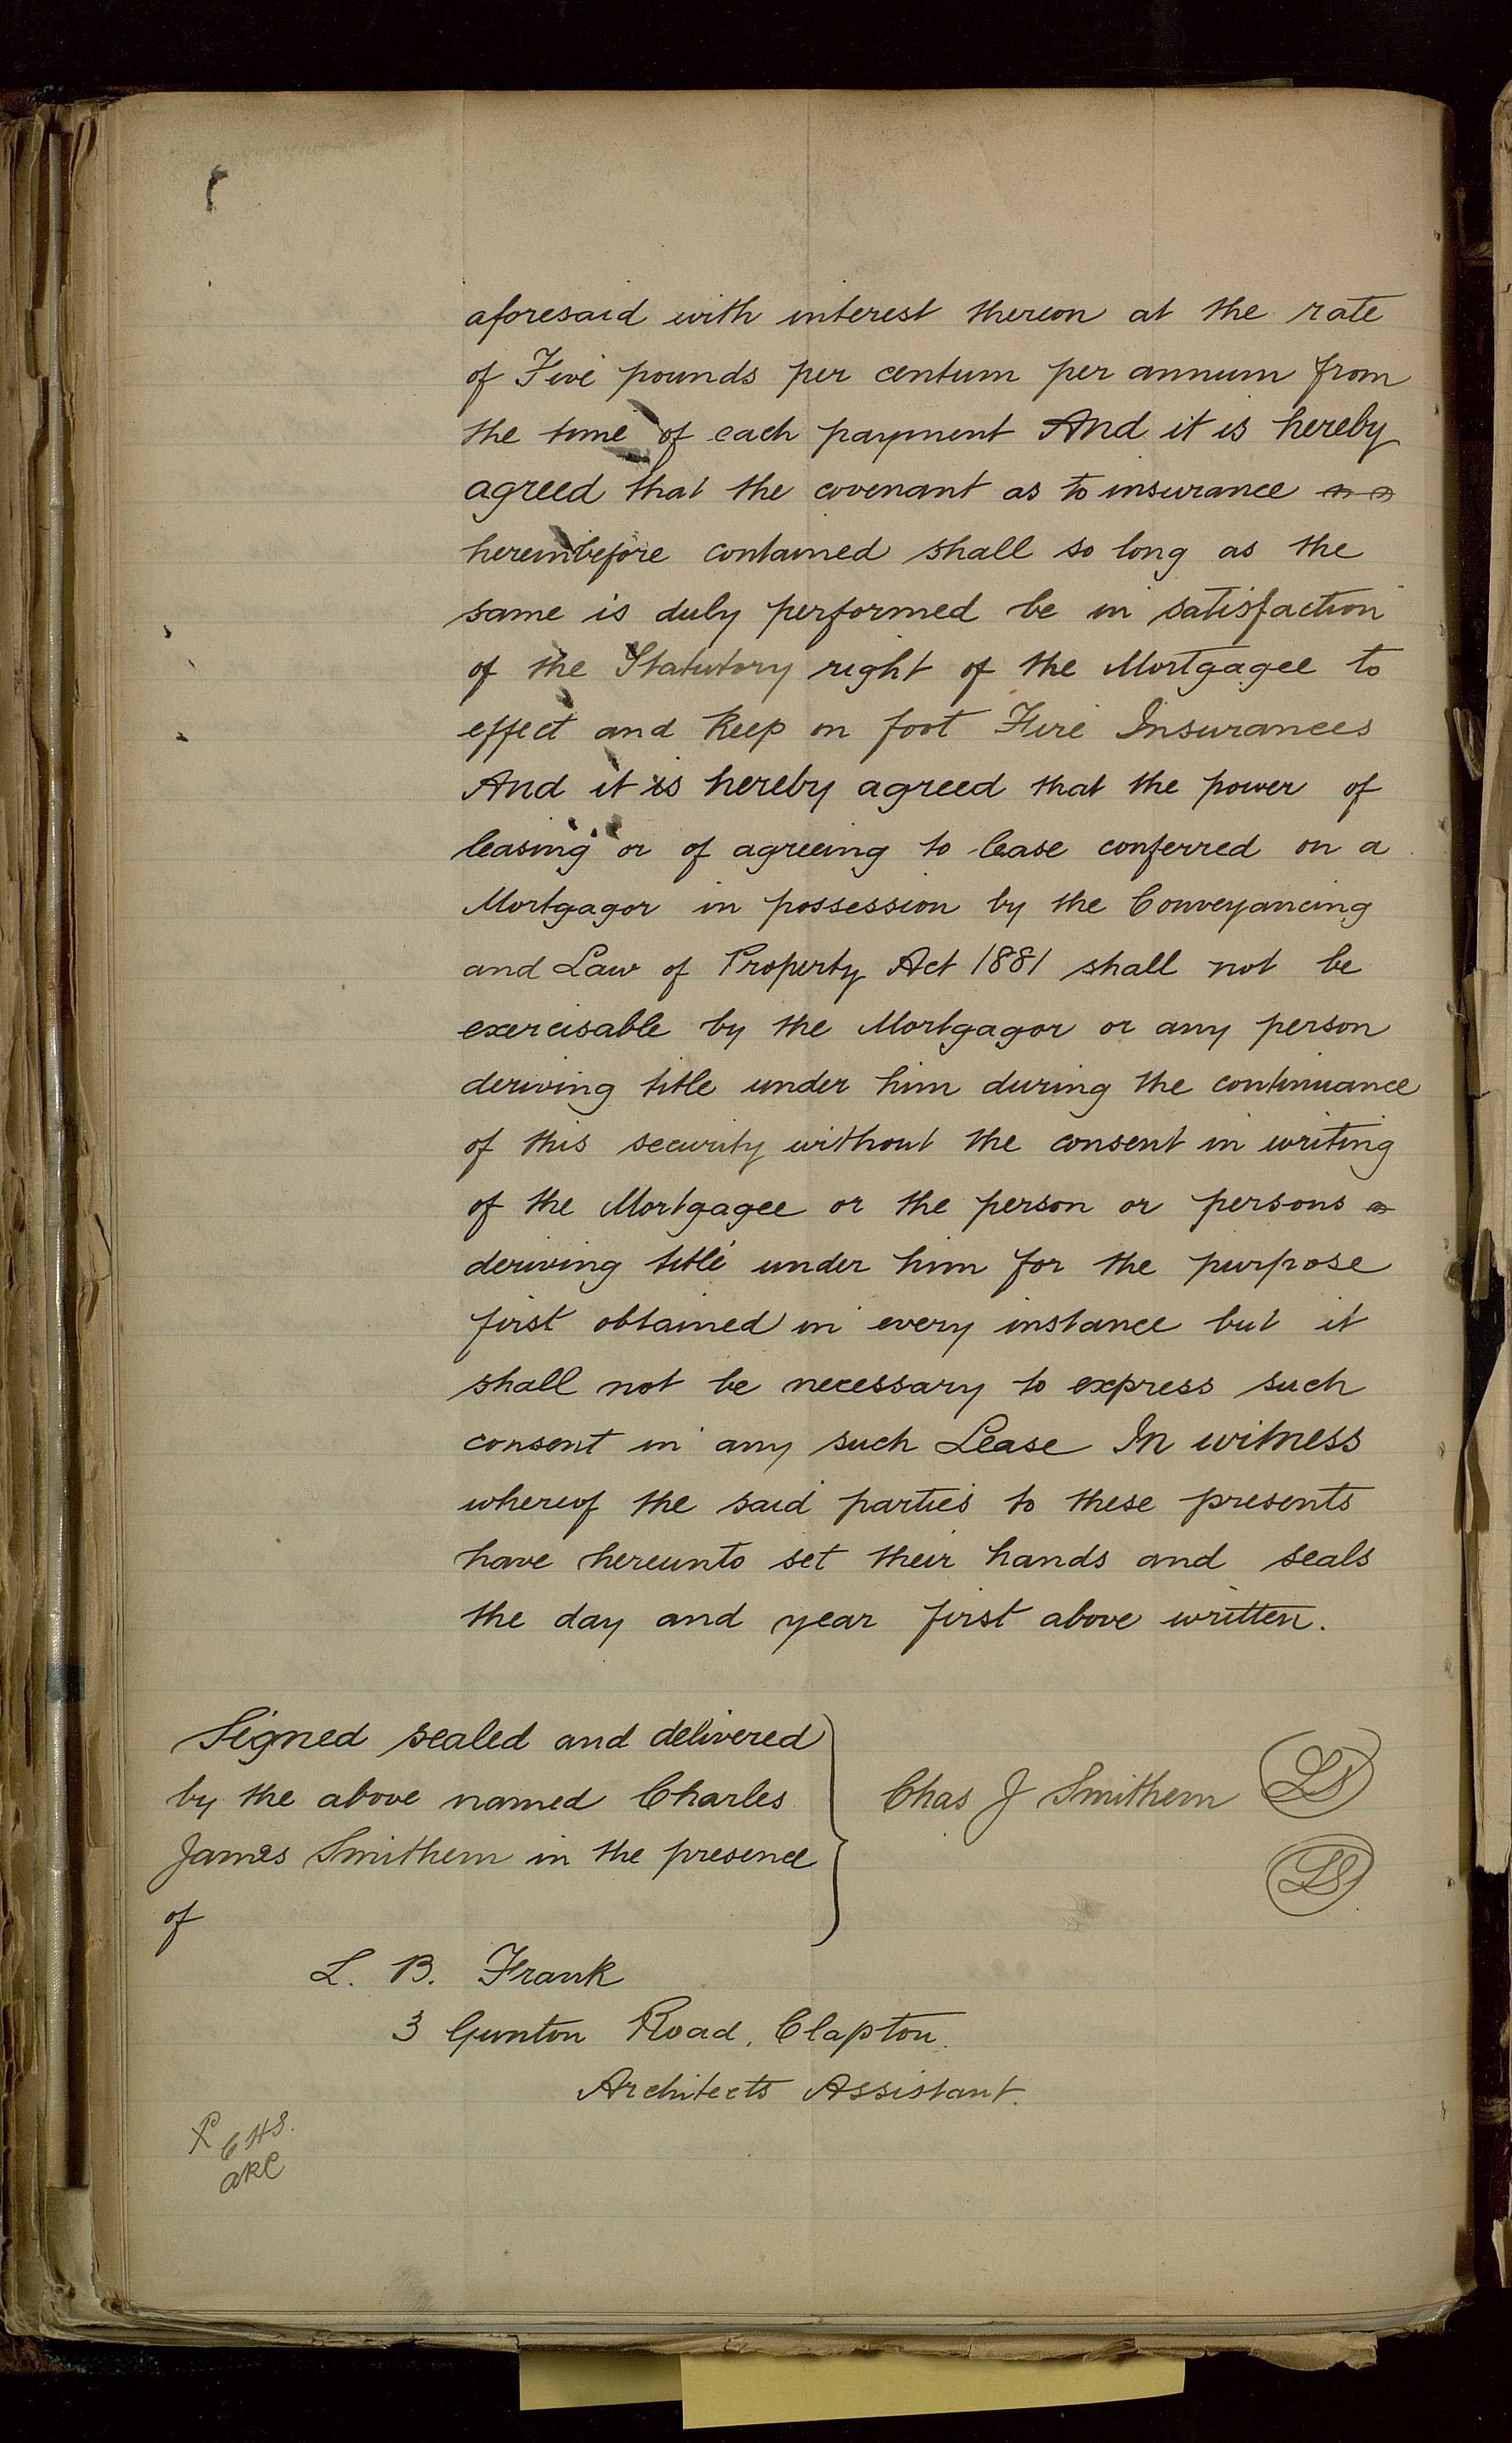 aforesaid with interest thereon at the rate
of Five pounds per centum per annum from
the time of each payment And it is hereby
agreed that the covenant as to insurance
hereinbefore contained shall so long as the
same is duly performed be in satisfaction
of the Statutory right of the Mortgagee to
effect and keep on foot Fire Insurances
And it is hereby agreed that the power of
leasing or of agreeing to lease conferred on a
Mortgagor in possession by the Conveyancing
and Law of Property Act 1881 shall not be
exercisable by the Mortgagor or any person
deriving title under him during the continuance
of this security without the consent in writing
of the Mortgagee or the person or persons
deriving title under him for the purpose
first obtained in every instance but it
shall not be necessary to express such
consent in any such Lease In witness
whereof the said parties to these presents
have hereunto set their hands and seals
the day and year first above written.
Signed sealed and delivered
by the above named Charles
James Smithem in the presence
of
Chas J Smithem LS
LS
L. B. Frank
3 Gunton Road, Clapton.
Architects Assistant.
CHS.
ARC